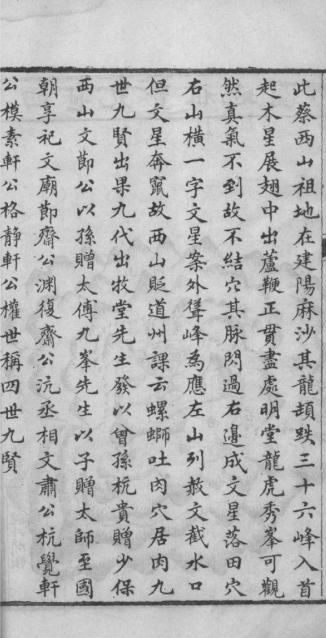 此蔡西山祖地在建陽麻沙其龍頓跌三十六峰入首
起木星展翅中出蘆鞭正貫盡處明堂龍虎秀峯可觀
然真氣不到故不結穴其脉閃過右邉成文星落田穴
右山橫一字文星案外聳峰為應左山列赦文截水口
但文星奔竄故西山貶道州課云螺螄吐肉穴居肉九
世九賢出果九代出牧堂先生發以曾孫杭貴贈少保
西山文節公以孫贈太傅九峯先生以子贈太師至國
朝享祀文廟節齋公淵復齋公沆丞相文肅公杭覺軒
公模素軒公格静軒公權世稱四世九賢